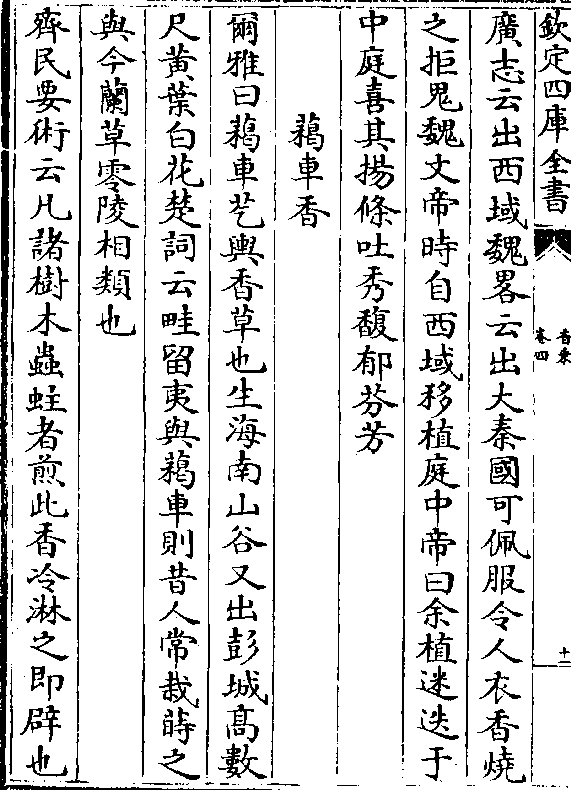 欽定四庫全書
香乘
卷四
十二
廣志云出西域魏畧云出大秦國可佩服令人衣香燒
之拒鬼魏文帝時自西域移植庭中帝曰余植迷迭于
中庭喜其揚條吐秀馥郁芬芳
藒車香
爾雅曰藒車艺輿香草也生海南山谷又出彭城髙數
尺黄葉白花楚詞云畦留夷與藒車則昔人常栽蒔之
與今蘭草零陵相類也
齊民要術云凡諸樹木蟲蛀者煎此香冷淋之即辟也